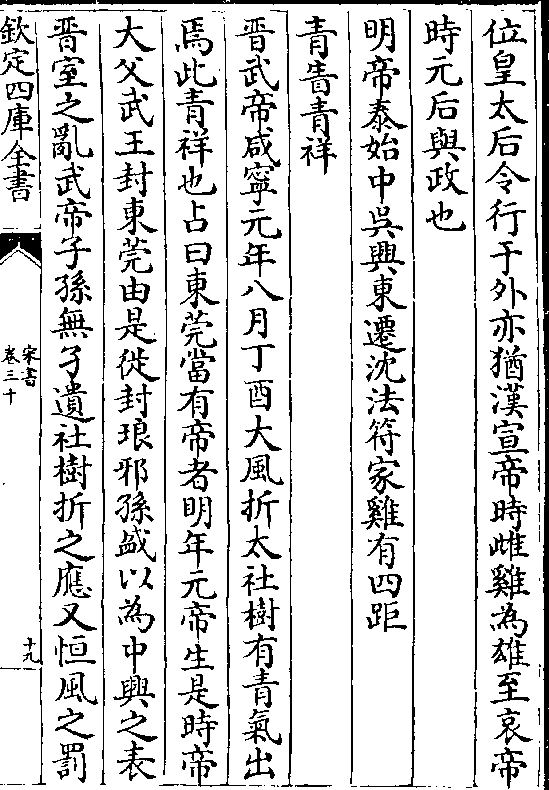 位皇太后令行于外亦猶漢宣帝時雌雞為雄至哀帝
時元后與政也
明帝泰始中吳興東遷沈法符家雞有四距
青眚青祥
晉武帝咸寧元年八月丁酉大風折太社樹有青氣出
焉此青祥也占曰東莞當有帝者明年元帝生是時帝
大父武王封東莞由是徙封琅邪孫盛以為中興之表
晉室之亂武帝子孫無孑遺社樹折之應又恒風之罰
欽定四庫全書
宋書
卷三十
十九